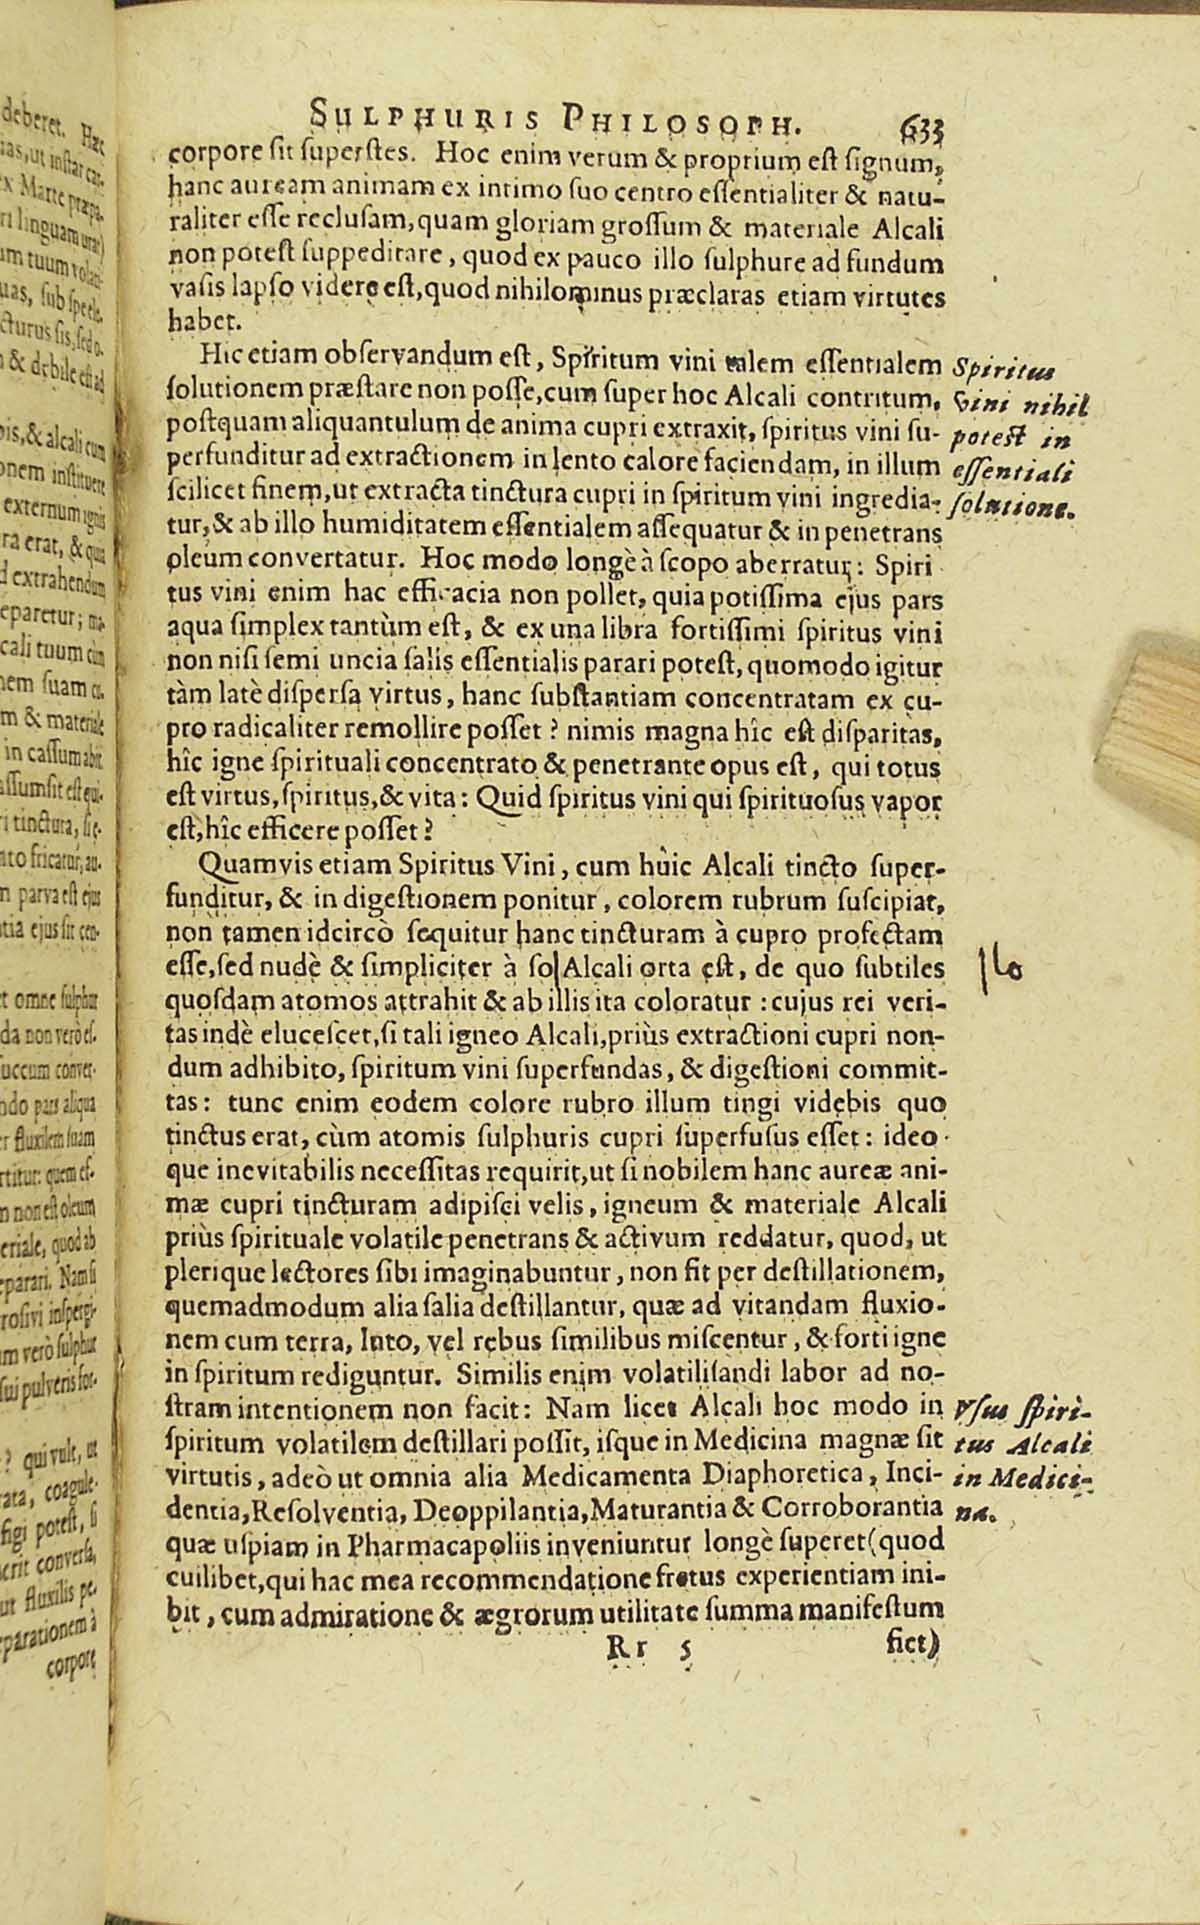 SULPHURIS PHILOSOPH. 633
corpore sit superstes. Hoc enim verum & proprium est signum,
hanc auream animam ex intimo suo centro essentialiter & natu-
raliter esse reclusam, quam gloriam grossum & materiale Alcali
non potest suppeditare, quod ex pauco illo sulphure ad fundum
vasis lapso videre est, quod nihilominus præclaras etiam virtutes
habet.
Hic etiam observandum est, Spiritum vini talem essentialem
solutionem præstare non posse, cum super hoc Alcali contritum,
postquam aliquantulum de anima cupri extraxit, spiritus vini su-
perfunditur ad extractionem in lento calore faciendam, in illum
scilicet finem, ut extracta tinctura cupri in spiritum vini ingredia-
tur, & ab illo humiditatem essentialem assequatur & in penetrans
oleum convertatur. Hoc modo longè à scopo aberratur: Spiri
tus vini enim hac efficacia non pollet, quia potissima ejus pars
aqua simplex tantùm est, & ex una libra fortissimi spiritus vini
non nisi semi uncia salis essentialis parari potest, quomodo igitur
tàm latè dispersa virtus, hanc substantiam concentratam ex cu-
pro radicaliter remollire posset? nimis magna hîc est disparitas,
hîc igne spirituali concentrato & penetrante opus est, qui totus
est virtus, spiritus, & vita: Quid spiritus vini qui spirituosus vapor
est, hîc efficere posset?
Quamvis etiam Spiritus Vini, cum huic Alcali tincto super-
funditur, & in digestionem ponitur, colorem rubrum suscipiat,
non tamen idcircò sequitur hanc tincturam à cupro profectam
esse, sed nudè & simpliciter à so|Alcali orta est, de quo subtiles
quosdam atomos attrahit & ab illis ita coloratur: cujus rei veri-
tas indè elucescet, si tali igneo Alcali, priùs extractioni cupri non-
dum adhibito, spiritum vini superfundas, & digestioni commit-
tas: tunc enim eodem colore rubro illum tingi videbis quo
tinctus erat, cùm atomis sulphuris cupri superfusus esset: ideo-
que inevitabilis necessitas requirit, ut si nobilem hanc aureæ ani-
mæ cupri tincturam adipisci velis, igneum & materiale Alcali
priùs spirituale volatile penetrans & activum reddatur, quod, ut
plerique lectores sibi imaginabuntur, non fit per destillationem,
quemadmodum alia salia destillantur, quæ ad vitandam fluxio-
nem cum terra, luto, vel rebus similibus miscentur, & forti igne
in spiritum rediguntur. Similis enim volatilisandi labor ad no-
stram intentionem non facit: Nam licet Alcali hoc modo in
spiritum volatilem destillari possit, isque in Medicina magnæ sit
virtutis, adeò ut omnia alia Medicamenta Diaphoretica, Inci-
dentia, Resolventia, Deoppilantia, Maturantia & Corroborantia
quæ uspiam in Pharmacapoliis inveniuntur longè superet (quod
cuilibet, qui hac mea recommendatione fretus experientiam ini-
bit, cum admiratione & ægrorum utilitate summa manifestum
Rr 5 fiet)
Spiritus
Vini nihil
potest in
essentiali
solutione.
Usus spiri-
tus Alcali
in Medici-
na.
deberet. Hæc
corpore